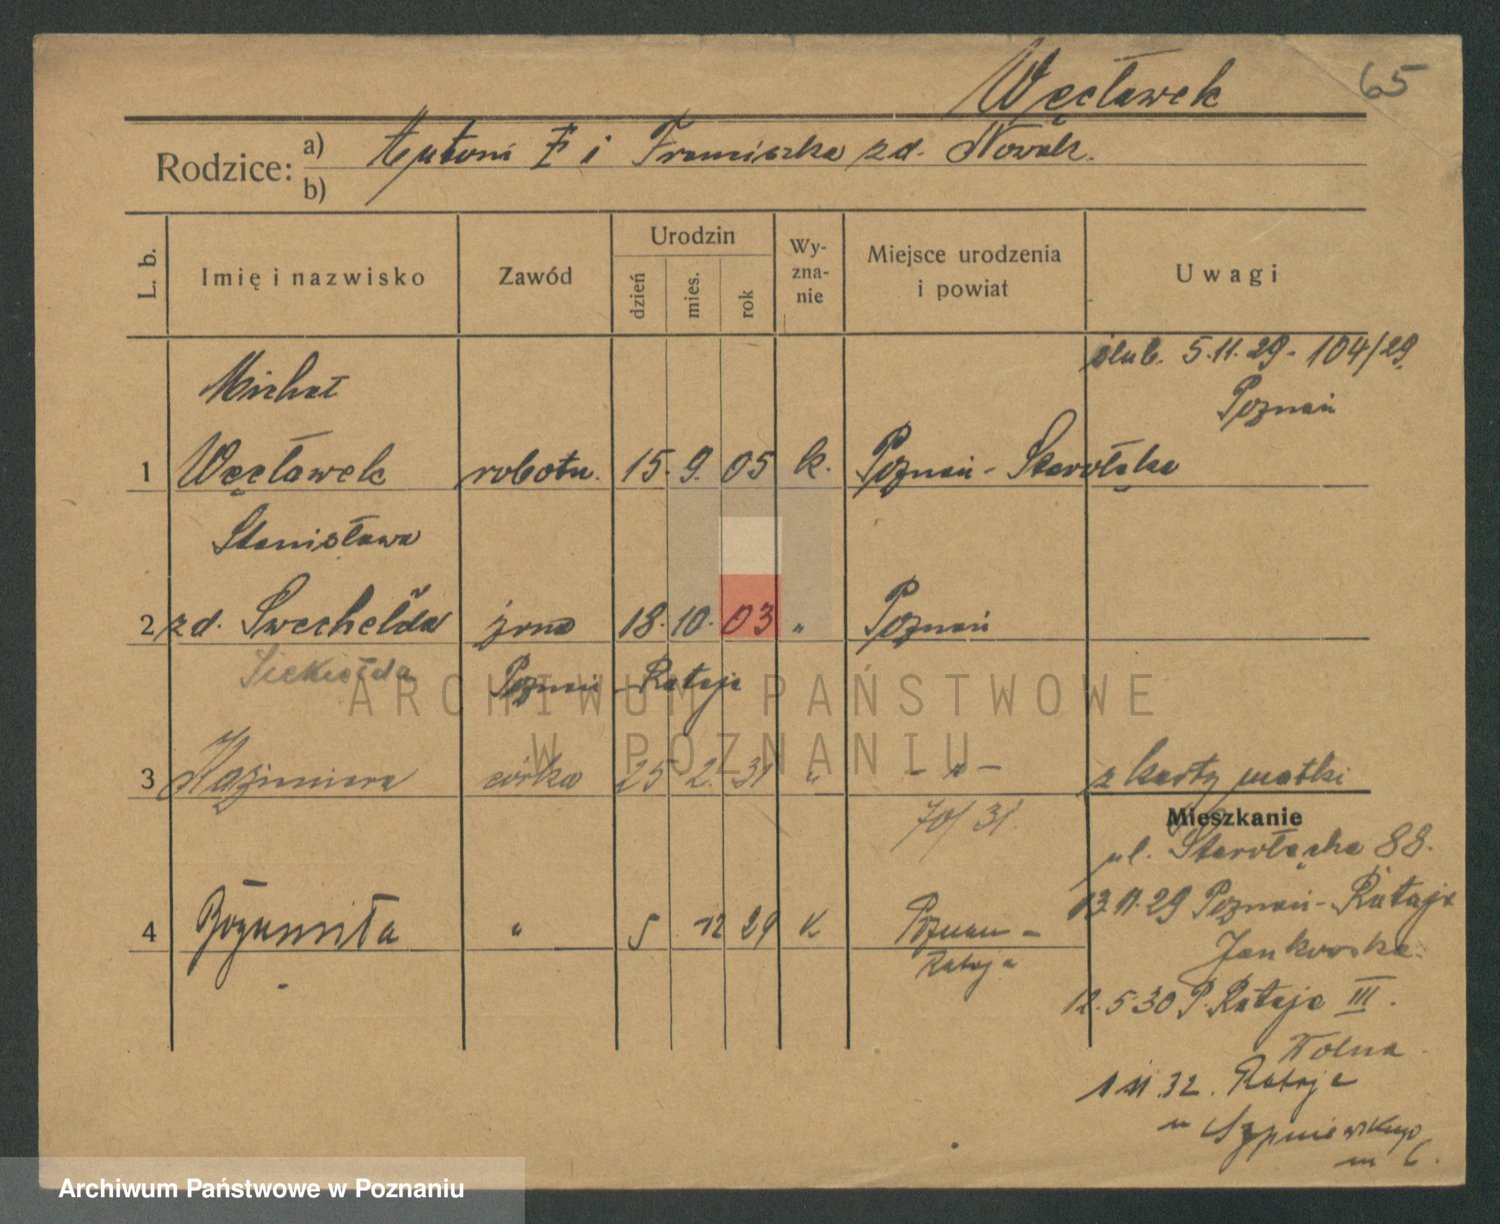 65
Węcławek
Rodzice: a) Antoni i Franciszka zd. Nowak.
b)
L. b. Imię i nazwisko Zawód Urodzin dzień mies. rok Wyznanie Miejsce urodzenia i powiat Uwagi
ślub. 5.11.29 - 104/29
Michał Poznań
1 Węcławek robotn. 15. 9. 05 k. Poznań - Starołęka
Stanisława
2 zd. Swechełda żona 18. 10. 03 " Poznań
Siekiełda Poznań - Rataje
ARCHIWUM PAŃSTWOWE
W POZNANIU
3 Kazimiera córka 25 2. 31 " - " - z karty matki
70/31 Mieszkanie
ul. Starołęcka 88.
13.11.29 Poznań - Rataje
4 Bogumiła " 5 12 29 k Poznań -
Rataje
Jankowska
12.5.30 P. Rataje III.
Wolna
1 XI. 32. Rataje
m 6.
Archiwum Państwowe w Poznaniu